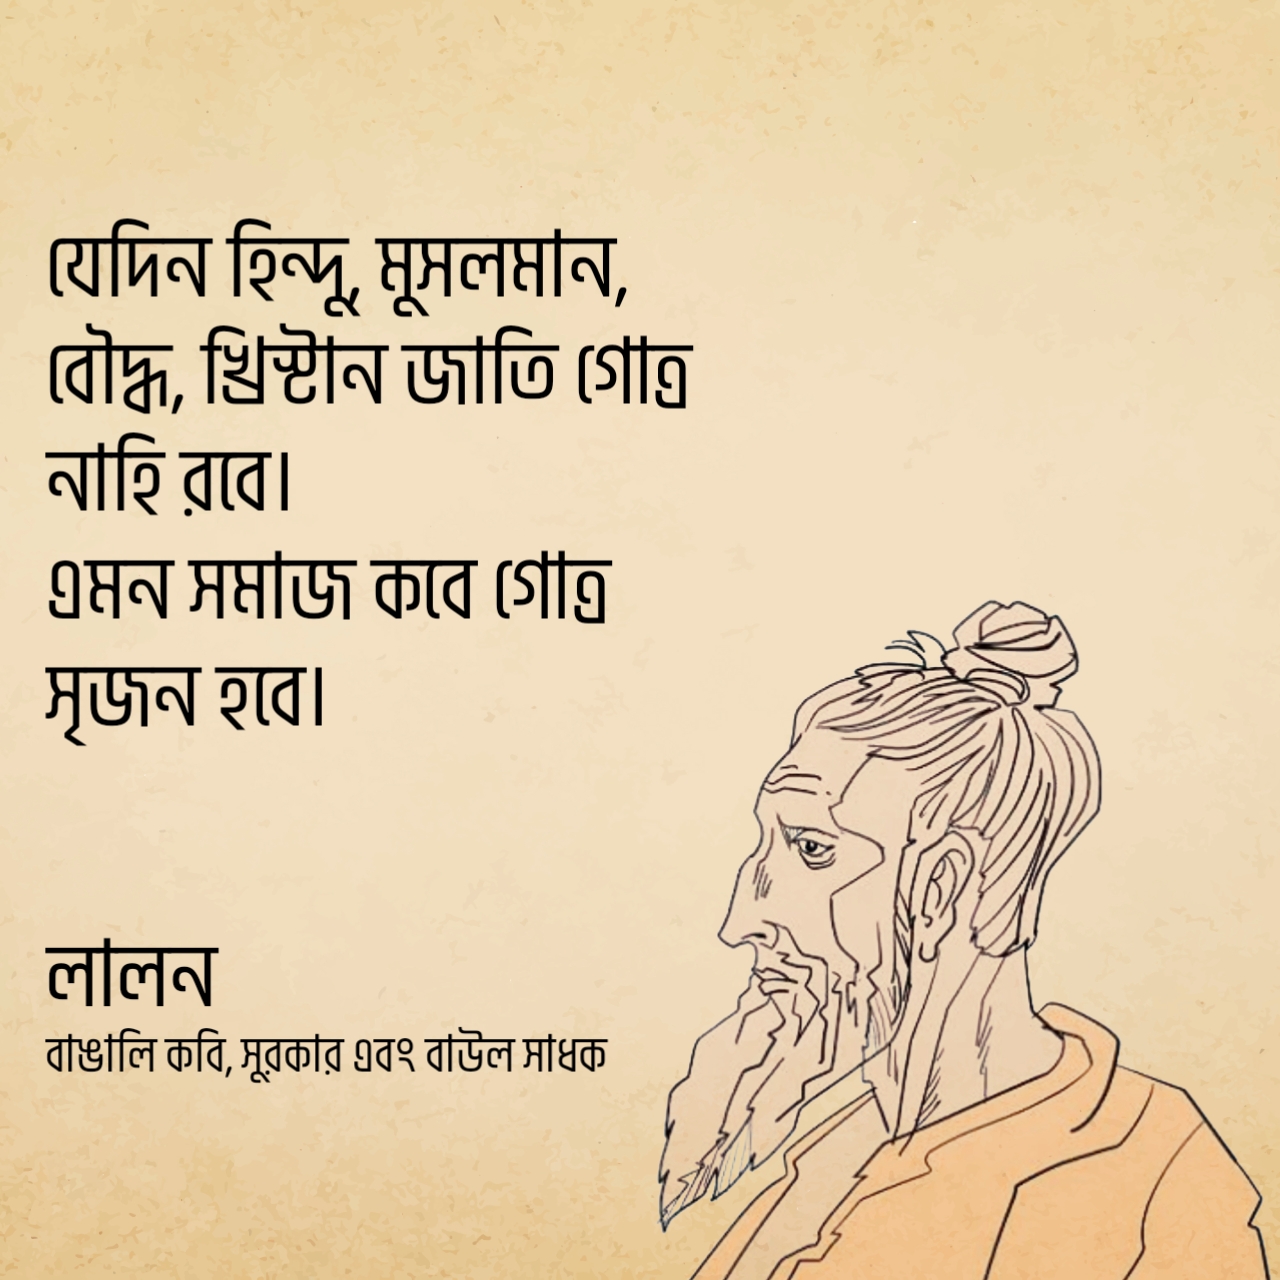 যেদিন হিন্দু, মুসলমান,
বৌদ্ধ, খ্রিস্টান জাতি গোত্র
নাহি রবে।
এমন সমাজ কবে গোত্র
সৃজন হবে।
লালন
বাঙালি কবি, সুরকার এবং বাউল সাধক